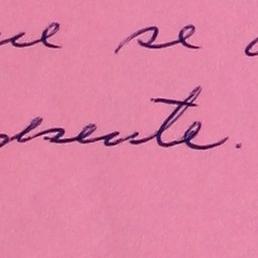 ue se
esente.